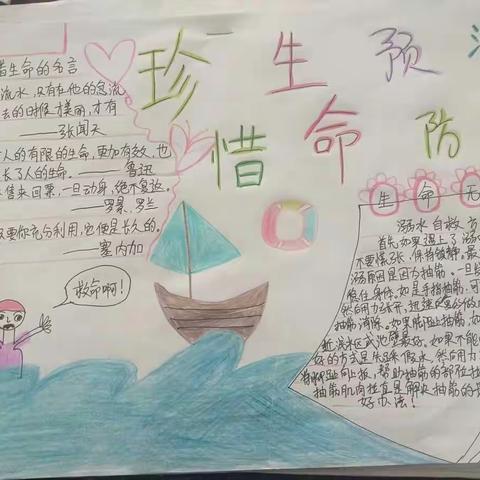 珍 生 预
惜 命 防
惜生命的名言
流水，只有在他的急流
去的时候才美丽，才有
——张闻天
人的有限的生命，更加有效，也
长了人的生命。——鲁迅
售来回票，一旦动身，绝不复返。
——罗曼·罗兰
要你充分利用，它便是长久的。
——塞内加
救命啊！
生 命 无
溺水自救方
首先如果遇上了溺水
不要慌张，保持镇静。最
溺原因是因为抽筋。一旦
稳住身体。如是手指抽筋，可
然后用力张开，迅速
抽筋消除。如果脚趾抽筋，如
好的方式是先深
然后用力
向上扳，帮助抽筋的部位拉
抽筋肌肉拉直是解决抽筋的最
好办法！